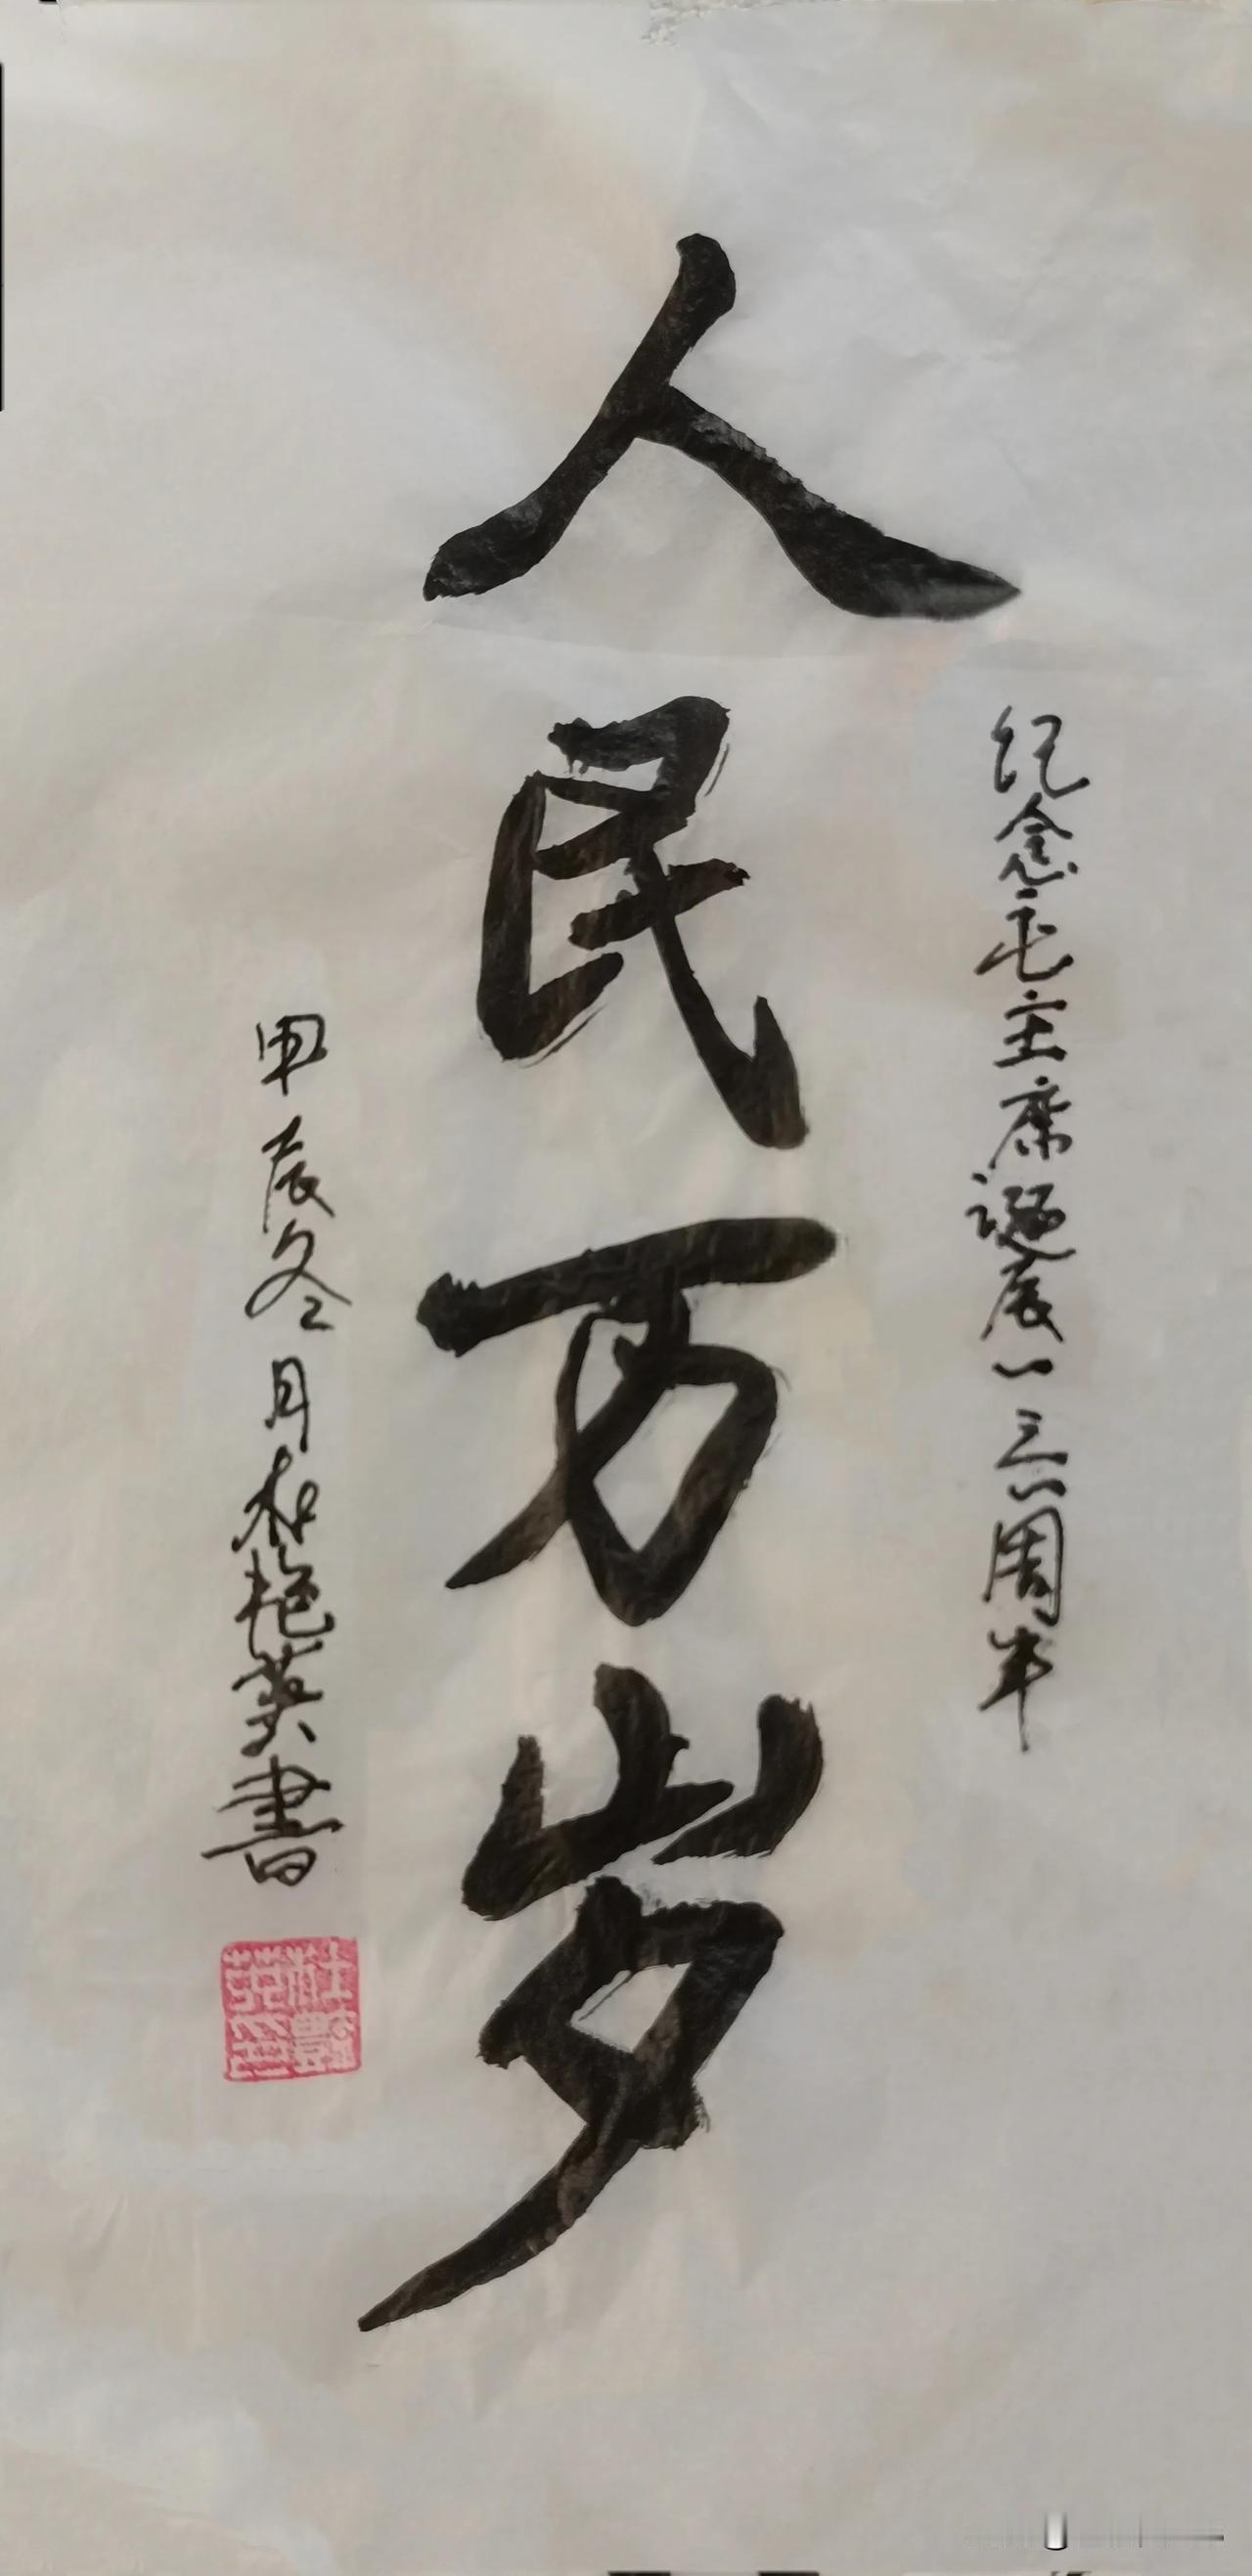 纪念毛主席诞辰一三一周年
人民万岁
甲辰冬月杜艳英書